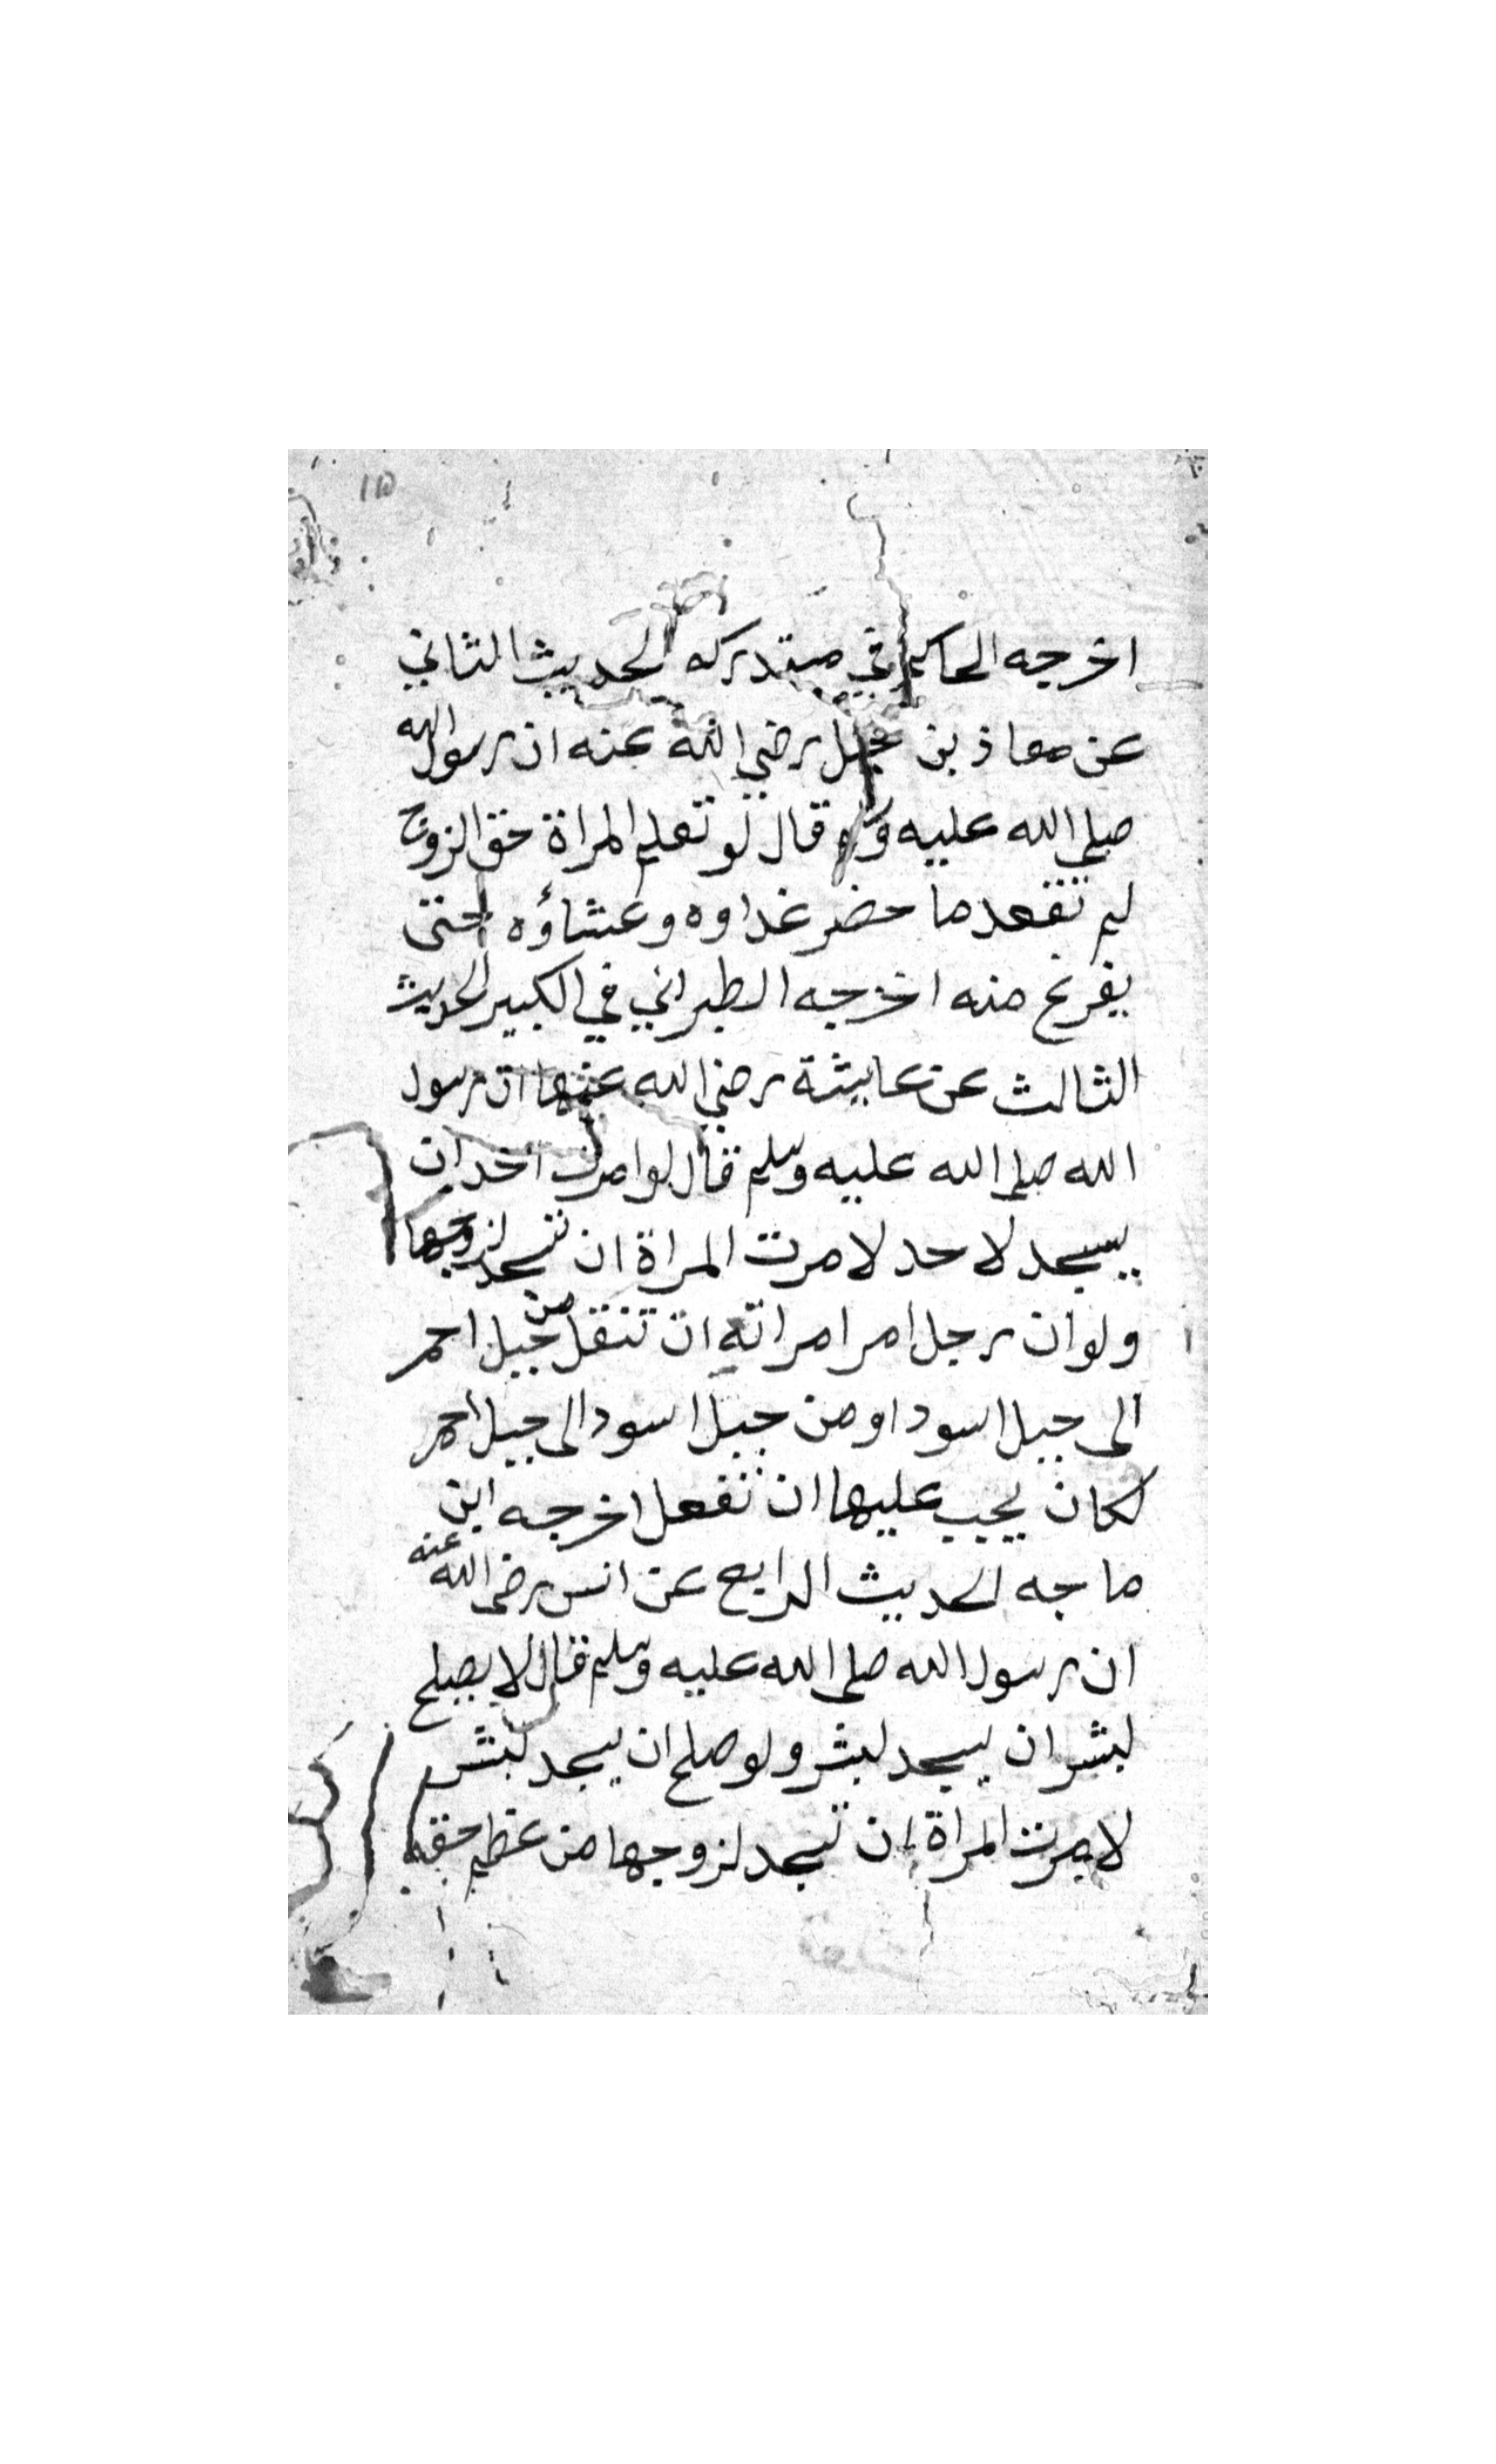 ١١٥
اخرجه الحاكم في مستدركه الحديث الثاني
عن معاذ بن جبل رضي الله عنه ان رسول الله
صلى الله عليه وسلم قال لو تعلم المراة حق الزوج
لم تقعد ما حضر غداوه وعشاؤه حتى
يفرغ منه اخرجه الطبراني في الكبير الحديث
الثالث عن عايشة رضي الله عنها ان رسول
الله صلى الله عليه وسلم قال لو امرت احدا ان
يسجد لاحد لامرت المراة ان تسجد لزوجها
ولو ان رجل امر امراته ان تنقل من جبل احمر
الى جبل اسود او من جبل اسود الى جبل احمر
لكان يجب عليها ان تفعل اخرجه ابن
ماجه الحديث الرابع عن انس رضى الله عنه
ان رسول الله صلى الله عليه وسلم قال لا يصلح
لبشر ان يسجد لبشر ولو صلح ان يسجد لبشر
لامرت المراة ان تسجد لزوجها من عظم حقه